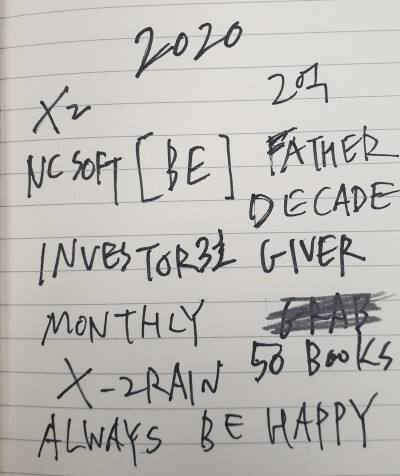 2020
X2 2억
NCSOFT [BE] FATHER
DECADE
INVESTOR GIVER
MONTHLY
50 BOOKS
X-2RAIN
ALWAYS BE HAPPY